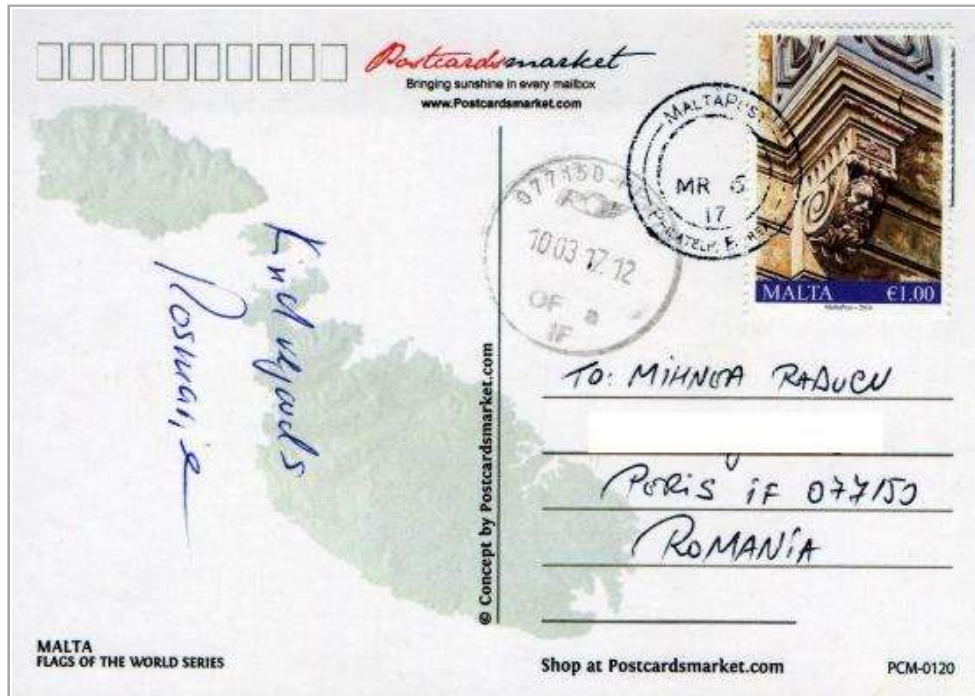 Postcardsmarket
Bringing sunshine in every mailbox
www.Postcardsmarket.com
MALTAPOST
MR 6
17
077150
10 03 17. 12
OF a
IF
MALTA €1.00
Kind regards
Rosmarie
© Concept by Postcardsmarket.com
TO: MIHNEA RADUCU
PERIS IF 077150
ROMANIA
MALTA
FLAGS OF THE WORLD SERIES
Shop at Postcardsmarket.com
PCM-0120